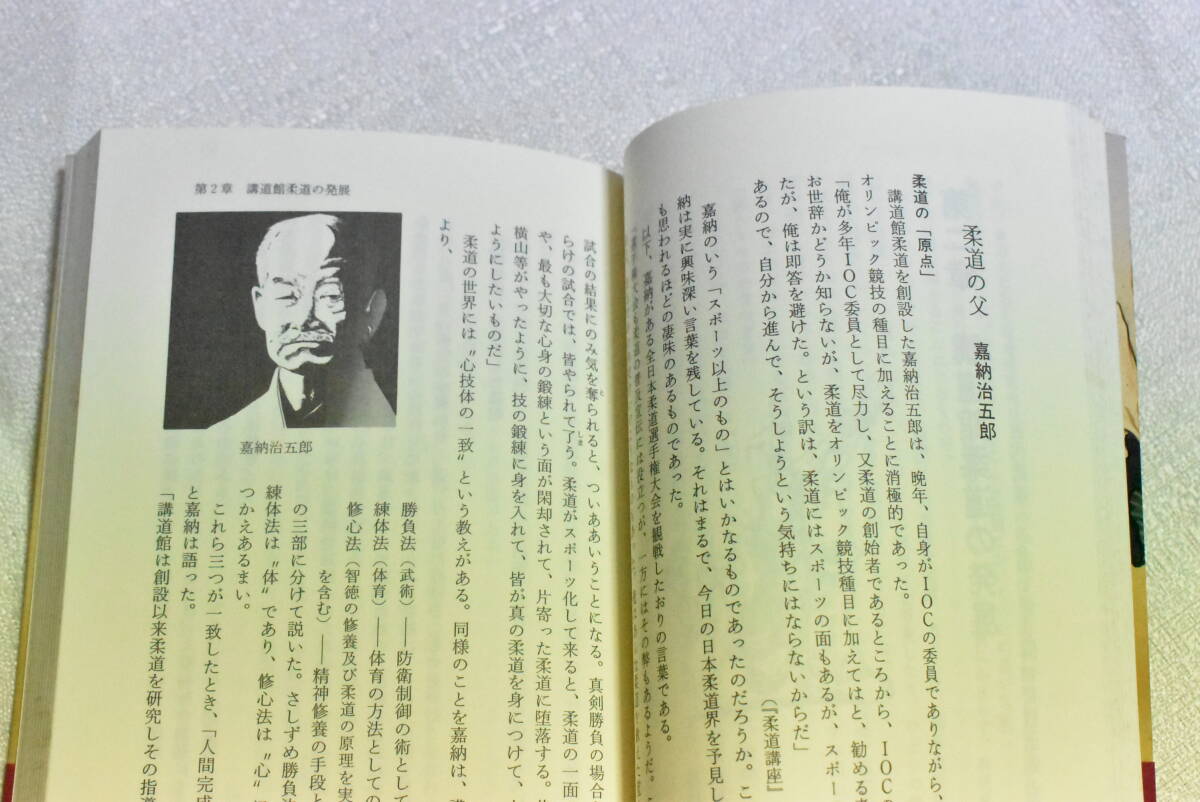 柔道の父　嘉納治五郎
柔道の「原点」
講道館柔道を創設した嘉納治五郎は、晩年、自身がIOCの委員でありながら、
オリンピック競技の種目に加えることに消極的であった。
「俺が多年IOC委員として尽力し、又柔道の創始者であるところから、IOC
お世辞かどうか知らないが、柔道をオリンピック競技種目に加えてはと、勧める
たが、俺は即答を避けた。という訳は、柔道にはスポーツの面もあるが、スポー
あるので、自分から進んで、そうしようという気持ちにはならないからだ」
（『柔道講座』
嘉納のいう「スポーツ以上のもの」とはいかなるものであったのだろうか。こ
納は実に興味深い言葉を残している。それはまるで、今日の日本柔道界を予見し
も思われるほどの凄味のあるものであった。
以下、嘉納がある全日本柔道選手権大会を観戦したおりの言葉である。
には役立つが、一方にはその弊もあるようだ。
第2章　講道館柔道の発展
嘉納治五郎
試合の結果にのみ気を奪られると、ついああいうことになる。真剣勝負の場合
らけの試合では、皆やられて了う。柔道がスポーツ化して来ると、柔道の一面
や、最も大切な心身の鍛練という面が閑却されて、片寄った柔道に堕落する。
横山等がやったように、技の鍛練に身を入れて、皆が真の柔道を身につけて、
ようにしたいものだ」
柔道の世界には〝心技体の一致〟という教えがある。同様のことを嘉納は、
より、
勝負法（武術）――防衛制御の術として
練体法（体育）――体育の方法としての
修心法（智徳の修養及び柔道の原理を実
を含む）――精神修養の手段と
の三部に分けて説いた。さしずめ勝負法
練体法は〝体〟であり、修心法は〝心〟
つかえあるまい。
これら三つが一致したとき、「人間完成
と嘉納は語った。
「講道館は創設以来柔道を研究しその指導